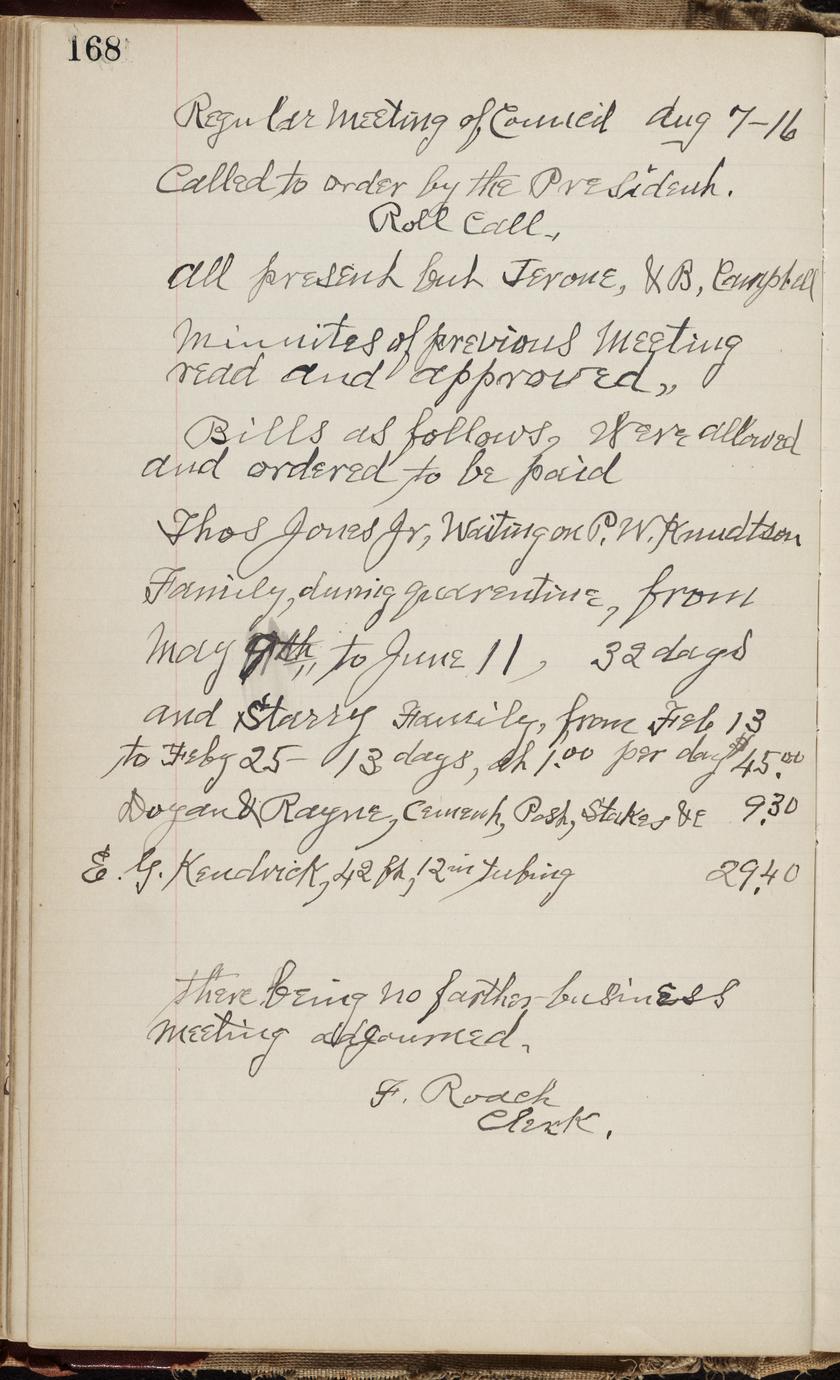 168
Regular Meeting of Council Aug 7-16
Called to order by the President.
Roll Call.,
all present but Jerone, & B, Campbell
Minnites of previous Meeting
read and approved,,
Bills as follows, Were allowed
and ordered to be paid
Thos Jones Jr, Waiting on P. W. Knudtson
Family, durnig quarentine, from
May 9th,, to June 11, 32 days
and Starry Family, from Feb 13
to Feby 25- 13 days, at 1.00 per day $45.00
& Rayne, Cement, Post, Stakes &c 9.30
E. G. Kendrick, 42 ft, 12 in tubing 29.40
there being no farther business
Meeting adjourned.
F. Roach
Clerk.